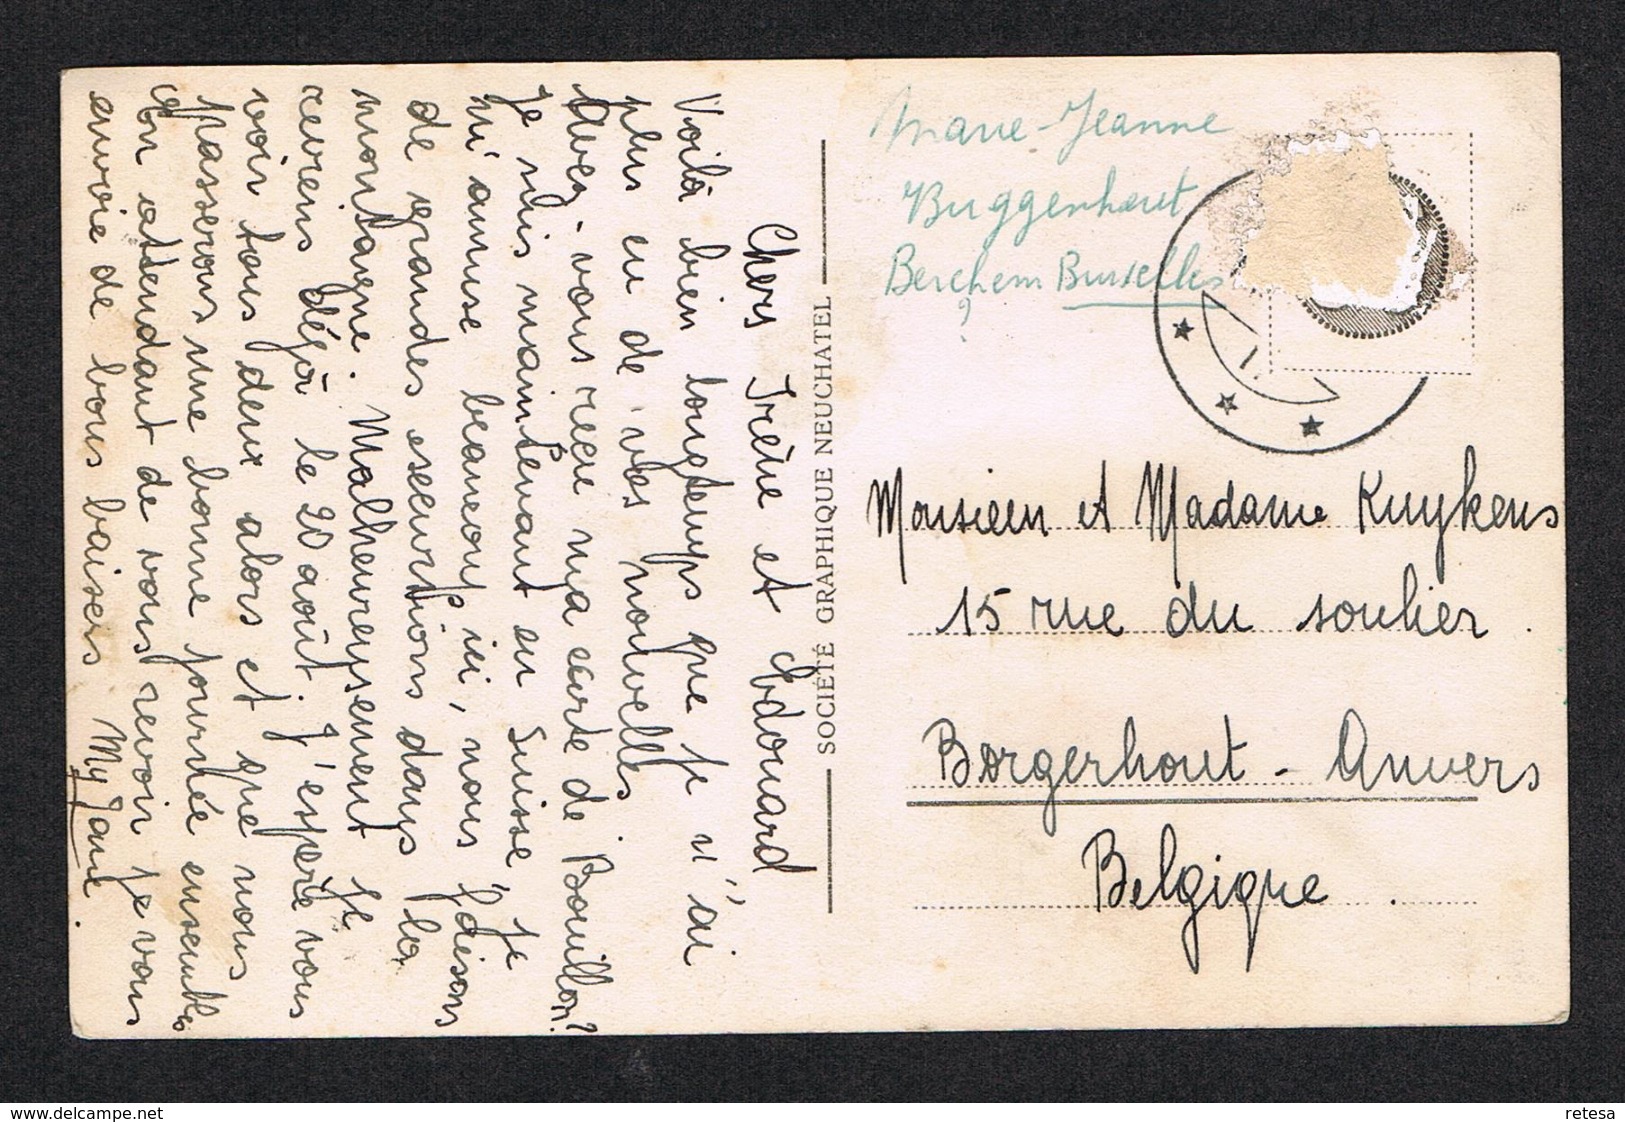 Chers Irène et Edouard
Voilà bien longtemps que je n'ai
plus eu de vos nouvelles
Avez-vous reçu ma carte de Bouillon?
Je suis maintenant en Suisse, je
m'amuse beaucoup ici, nous faisons
de grandes excurtions dans la
montagne. Malheureusement je
reviens déjà le 20 août. J'espère vous
voir tous deux alors et que nous
passerons une bonne journée ensemble
en attendant de vous revoir je vous
envoie de bons baisers My Jane.
SOCIÉTÉ GRAPHIQUE NEUCHATEL
Marie-Jeanne
Buggenhout
Berchem Bruxelles
?
Monsieur et Madame Kuykens
15 rue du soulier.
Borgerhout - Anvers
Belgique.
© www.delcampe.net
retesa